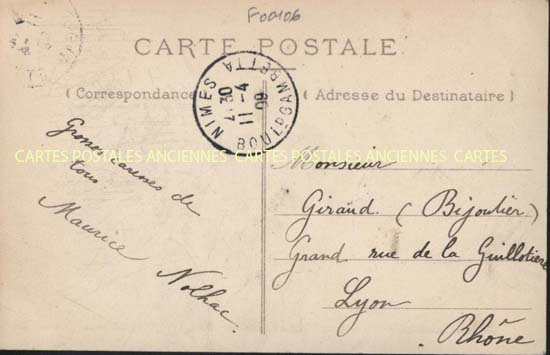 F00106
CARTE POSTALE
( Correspondance
( Adresse du Destinataire )
NIMES
4 30
11 - 4
09
BOULD GAMBETTA
CARTES POSTALES ANCIENNES CARTES POSTALES ANCIENNES CARTES
Grosses caresses de
tous
Maurice
Nolhac.
Monsieur
Giraud. ( Bijoutier )
Grand rue de la Guillotière
Lyon
Rhône